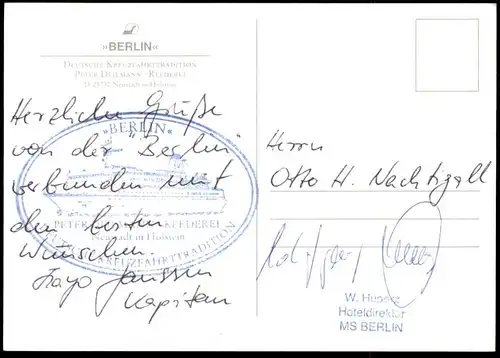 »BERLIN«
DEUTSCHE KREUZFAHRTTRADITION
PETER DEILMANN · REEDEREI
D-23730 Neustadt in Holstein
Herzliche Grüße
von der "Berlin"
verbunden mit
den besten
Wünschen.
Frayo Janssen
Kapitän
»BERLIN«
PETER REEDEREI
Neustadt in Holstein
KREUZFAHRTTRADITION
Herrn
Otto H. Nachtigall
W. Huperz
Hoteldirektor
MS BERLIN